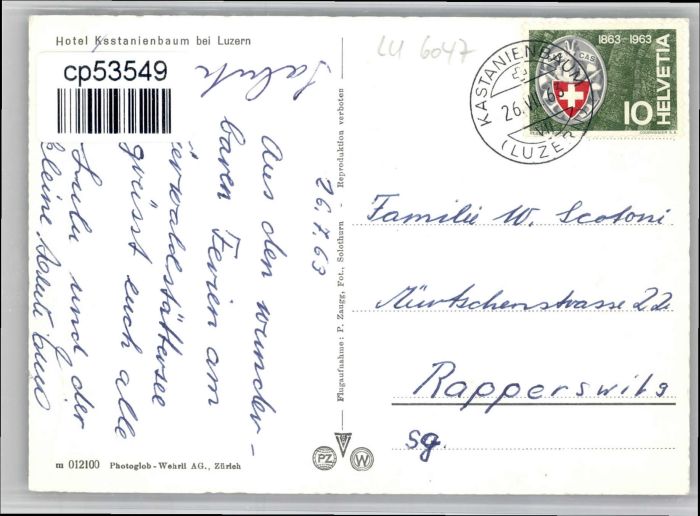 Hotel Kastanienbaum bei Luzern
cp53549
LU 6047
Salüti
Aus den wunder-
baren Ferien am
Vierwaldstättersee
grüsst euch alle
Lulu und der
kleine
26.7.63
Reproduktion verboten
Flugaufnahme: P. Zaugg, Fot., Solothurn
KASTANIENBAUM
26.VII.63
(LUZERN)
1863-1963
CAS
HELVETIA
10
COURVOISIER S.A.
Familie W. Scotoni
Mürtschenstrasse 22
Rapperswil
sg.
PZ
W
m 012100 Photoglob-Wehrli AG., Zürich